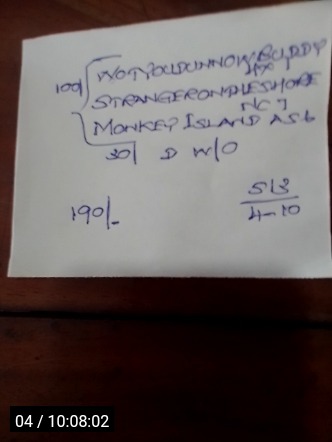 100/ WOTYOUDUNNOWBUDDY
4PX
STRANGERONTHESHORE
NC 7
MONKEY ISLAND AS6
30/ D W/O
190/-
513
4-10
04 / 10:08:02